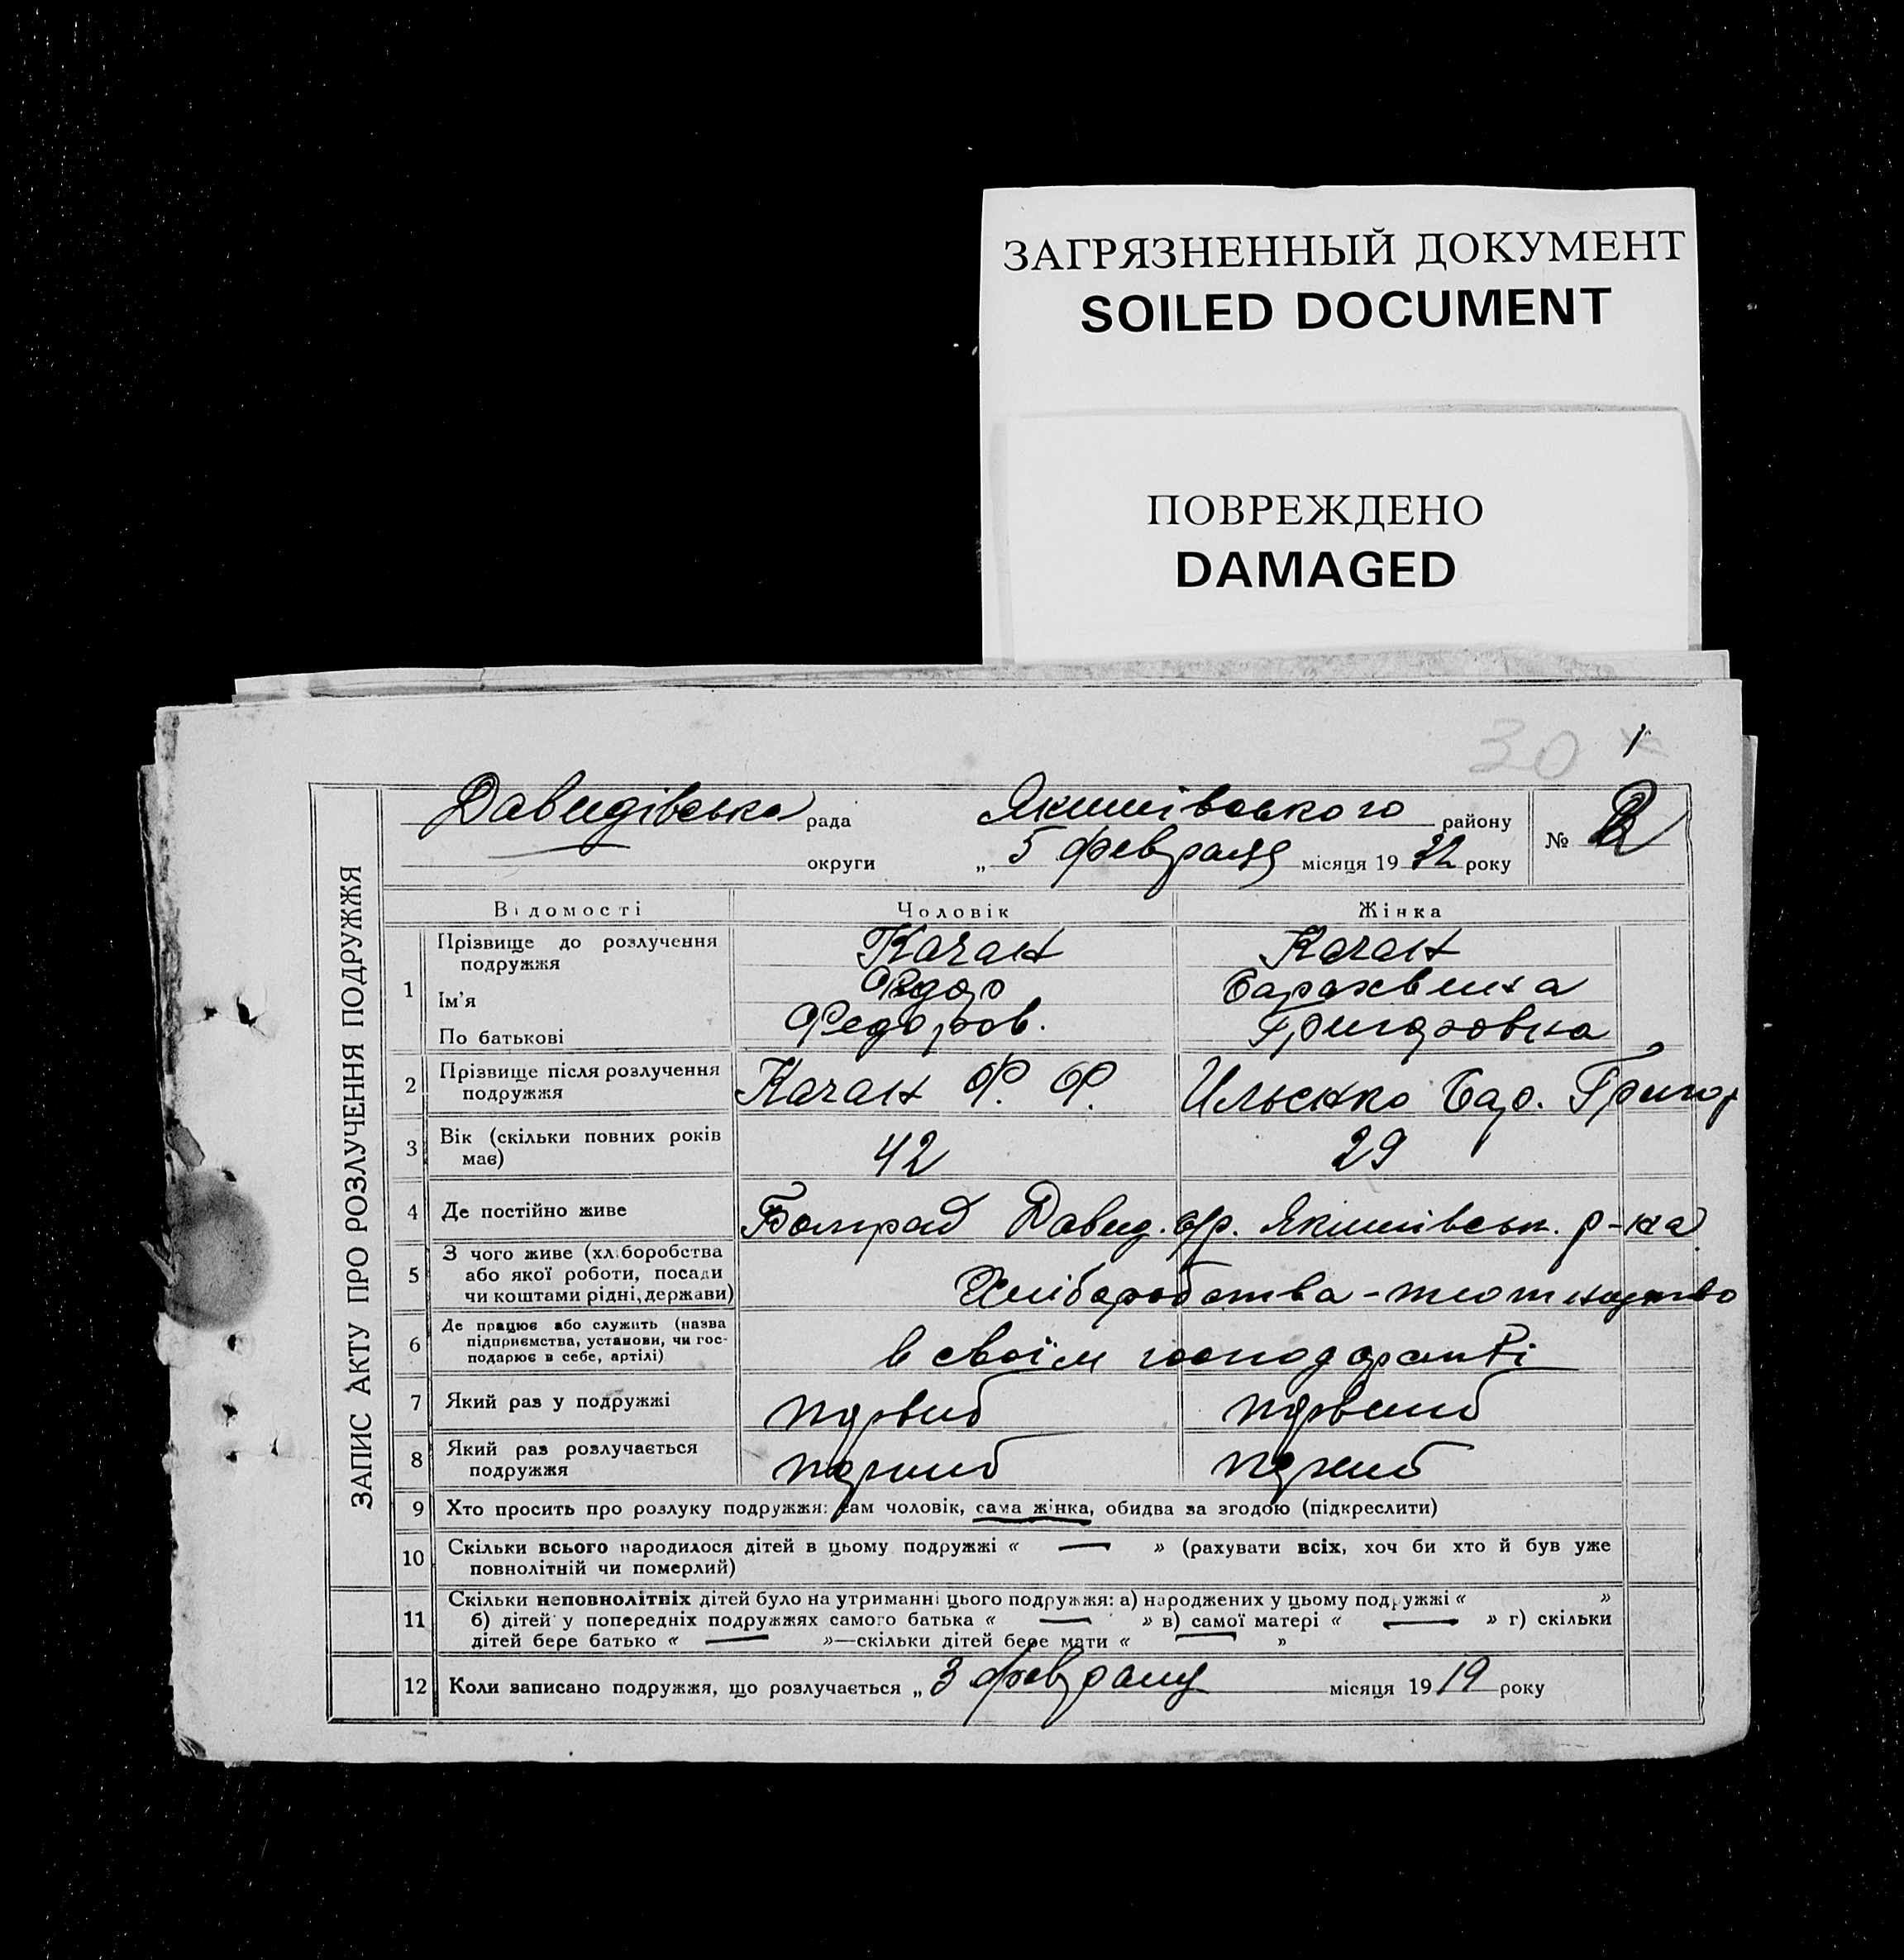 ЗАГРЯЗНЕННЫЙ ДОКУМЕНТ
SOILED DOCUMENT
ПОВРЕЖДЕНО
DAMAGED
30
1
ЗАПИС АКТУ ПРО РОЗЛУЧЕННЯ ПОДРУЖЖЯ
Давидівська рада Якимівського району № 2
округи „ 5 февраля місяця 19 32 року
Відомості Чоловік Жінка
1 Прізвище до розлучення подружжя Качан Качан
Ім'я Федор
По батькові Федоров. Григоровна
2 Прізвище після розлучення подружжя Качан Ф. Ф. Ильенко Вар. Григор
3 Вік (скільки повних років має) 42 29
4 Де постійно живе Болград Давид. с/р. Якимівськ. р-на
5 З чого живе (хліборобства або якої роботи, посади чи коштами рідні, держави) Хліборобства -
6 Де працює або служить (назва підприємства, установи, чи господарює в себе, артілі) в своїм господарстві
7 Який раз у подружжі первий первий
8 Який раз розлучається подружжя первий первий
9 Хто просить про розлуку подружжя: сам чоловік, сама жінка, обидва за згодою (підкреслити)
10 Скільки всього народилося дітей в цьому подружжі « — » (рахувати всіх, хоч би хто й був уже
повнолітній чи померлий)
11 Скільки неповнолітніх дітей було на утриманні цього подружжя: а) народжених у цьому подружжі « »
б) дітей у попередніх подружжях самого батька « — » в) самої матері « — » г) скільки
дітей бере батько « — »—скільки дітей бере мати « — »
12 Коли записано подружжя, що розлучається „ 3 февраля місяця 19 19 року